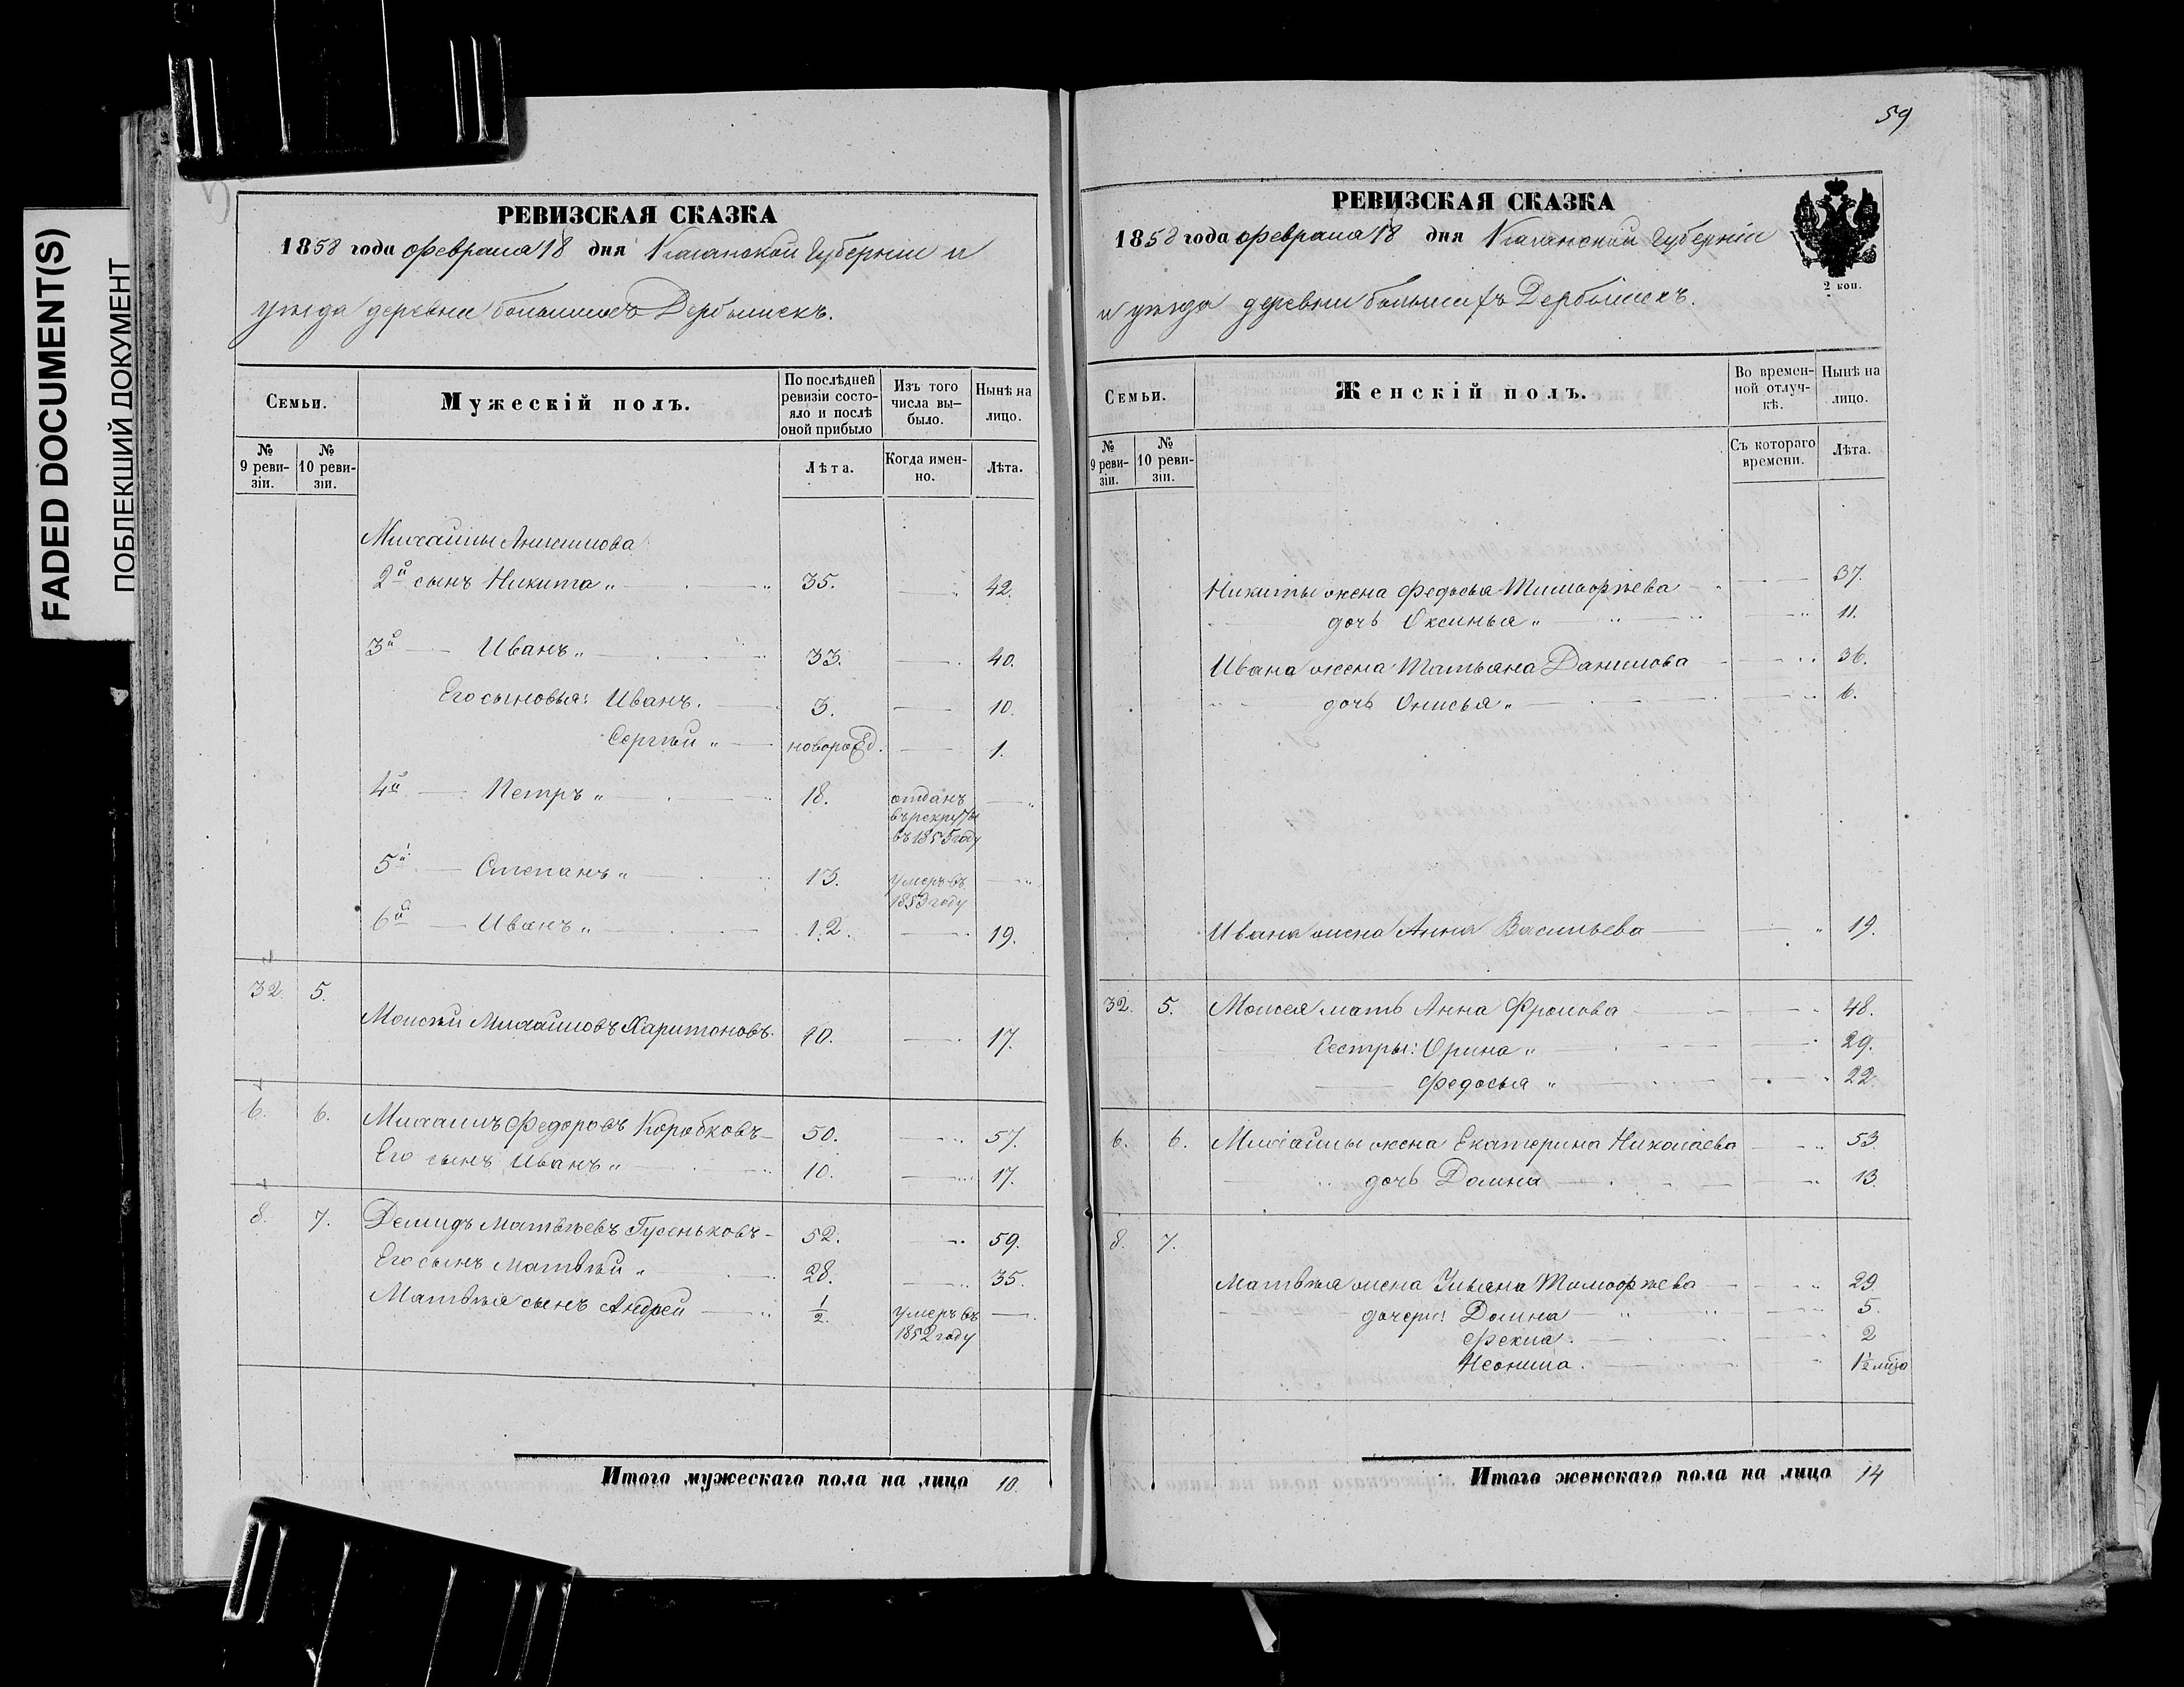 FADED DOCUMENT(S)
ПОБЛЕКШИЙ ДОКУМЕНТ
РЕВИЗСКАЯ СКАЗКА
1858 года Февраля 18 дня Казанской Губерніи и
уѣзда деревни большихъ Дербышекъ.
Семьи.
Мужескій полъ.
По послѣдней ревизіи состояло и послѣ оной прибыло
Изъ того числа выбыло.
Нынѣ на лицо.
№ 9 ревизіи.
№ 10 ревизіи.
Лѣта.
Когда именно.
Лѣта.
Михайлы Анисимова
2й сынъ Никита „ 35. 42.
3й Иванъ „ 33. 40.
Его сыновья: Иванъ. 3. 10.
Сергѣй „ новорожд. 1.
4й Петръ „ 18. отданъ
въ рекруты
въ 1855 году
5й Степанъ „ 13. умеръ въ
1853 году
6й Иванъ „ 12. 19.
32. 5.
Моисѣй Михайловъ Харитоновъ. 10. 17.
6. 6. Михаилъ Федоровъ Коробковъ 50. 57.
Его сынъ Иванъ „ 10. 17.
8. 7. Демидъ Матвѣевъ Гусеньковъ 52. 59.
Его сынъ Матвѣй „ 28. 35.
Матвѣя сынъ Андрей 1/2. умеръ въ
1852 году
Итого мужескаго пола на лицо 10.
59
РЕВИЗСКАЯ СКАЗКА
1858 года Февраля 18 дня Казанской Губерніи
и уѣзда деревни большихъ Дербышекъ.
2 коп.
Семьи.
Женскій полъ.
Во временной отлучкѣ.
Нынѣ на лицо.
№ 9 ревизіи.
№ 10 ревизіи.
Съ котораго времени.
Лѣта.
Никиты жена Федосья Тимофѣева 37.
дочь Оксинья „ 11.
Ивана жена Татьяна Данилова 36.
дочь Онисья „ 6.
Ивана жена Анна Васильева 19.
32. 5. Моисея мать Анна Фролова 48.
Сестры: Орина „ 29.
Федосья „ 22.
6. 6. Михайлы жена Екатерина Николаева 53.
дочь Домна 13.
8. 7.
Матвѣя жена Ульяна Тимофѣева 29.
дочери: Домна 5.
Фекла. 2
Неонила. 1/2
Итого женскаго пола на лицо 14